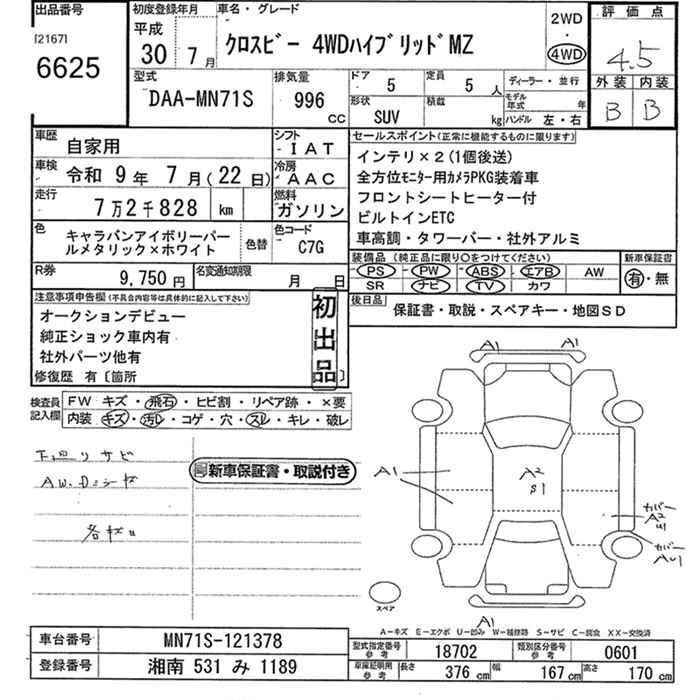 出品番号
[2167]
6625
初度登録年月
平成
30年7月
車名・グレード
クロスビー 4WDハイブリッドMZ
2WD
・
4WD
評価点
4.5
外装 内装
B B
型式
DAA-MN71S
排気量
996
CC
ドア
5
定員
5 人
形状
SUV
積載
kg
ディーラー・並行
モデル年式 年
ハンドル 左・右
車歴
自家用
シフト
IAT
車検
令和 9年 7月(22日)
冷房
AAC
走行
7万2千828 km
燃料
ガソリン
色
キャラバンアイボリーパー
ルメタリック×ホワイト
色替
色コード
C7G
R券
9,750円
名変通知期限
月 日
セールスポイント(正常に機能するものに限ります)
インテリ×2(1個後送)
全方位モニター用カメラPKG装着車
フロントシートヒーター付
ビルトインETC
車高調・タワーバー・社外アルミ
装備品(純正品に限り○をつけてください)
PS PW ABS エアB AW
SR ナビ TV カワ
新車保証書
有・無
後日品
保証書・取説・スペアキー・地図SD
注意事項申告欄(不具合内容等は具体的に記入して下さい)
オークションデビュー
純正ショック車内有
社外パーツ他有
修復歴 有〔箇所 〕
初出品
検査員記入欄
FW キズ・飛石・ヒビ割・リペア跡・×要
内装 キズ・汚レ・コゲ・穴・スレ・キレ・破レ
下廻リサビ
新車保証書・取説付き
A1
A1
A1
A2
S1
カバー
A2
U1
カバー
AU1
A1
スペア
A-キズ E-エクボ U-凹み W-補修跡 S-サビ C-腐食 XX-交換済
車台番号
MN71S-121378
登録番号
湘南 531 み 1189
型式指定番号
参考
18702
類別区分番号
参考
0601
車庫証明用
参考
長さ 376 cm 幅 167 cm 高さ 170 cm